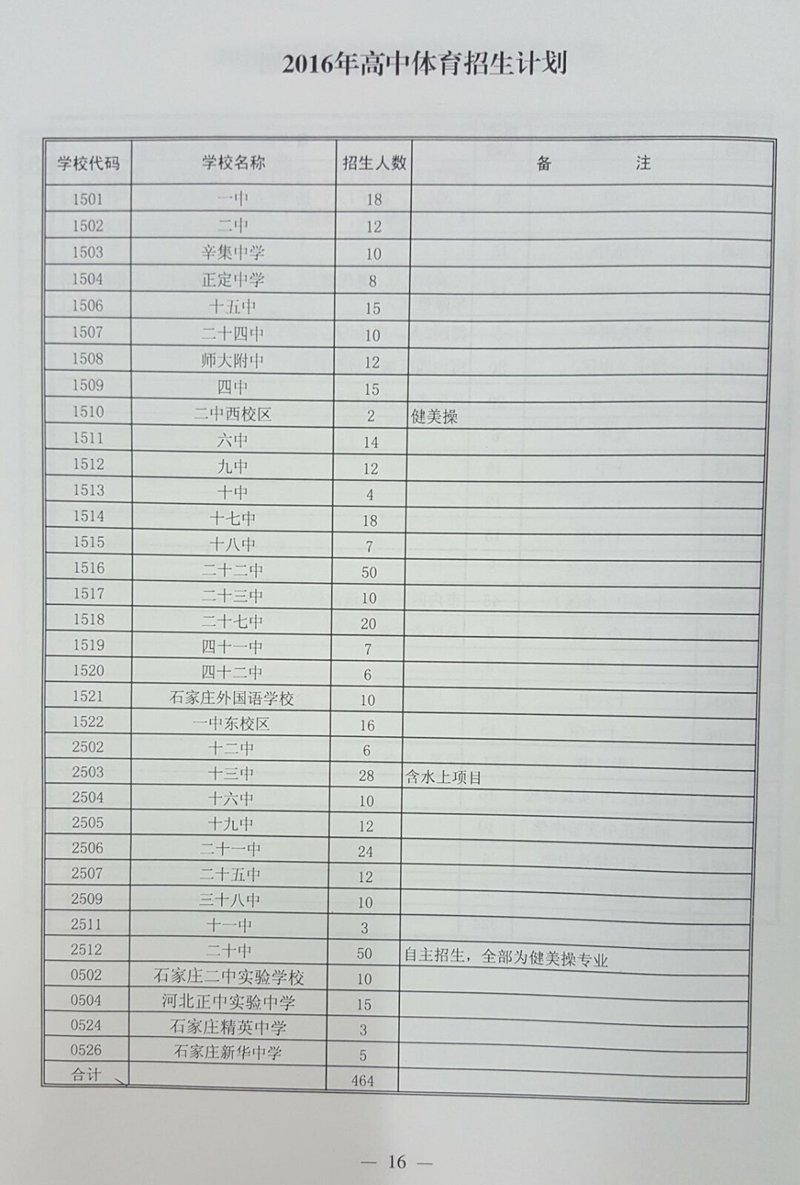 2016年高中体育招生计划
学校代码 学校名称 招生人数 备 注
1501 一中 18
1502 二中 12
1503 辛集中学 10
1504 正定中学 8
1506 十五中 15
1507 二十四中 10
1508 师大附中 12
1509 四中 15
1510 二中西校区 2 健美操
1511 六中 14
1512 九中 12
1513 十中 4
1514 十七中 18
1515 十八中 7
1516 二十二中 50
1517 二十三中 10
1518 二十七中 20
1519 四十一中 7
1520 四十二中 6
1521 石家庄外国语学校 10
1522 一中东校区 16
2502 十二中 6
2503 十三中 28 含水上项目
2504 十六中 10
2505 十九中 12
2506 二十一中 24
2507 二十五中 12
2509 三十八中 10
2511 十一中 3
2512 二十中 50 自主招生，全部为健美操专业
0502 石家庄二中实验学校 10
0504 河北正中实验中学 15
0524 石家庄精英中学 3
0526 石家庄新华中学 5
合计 464
— 16 —